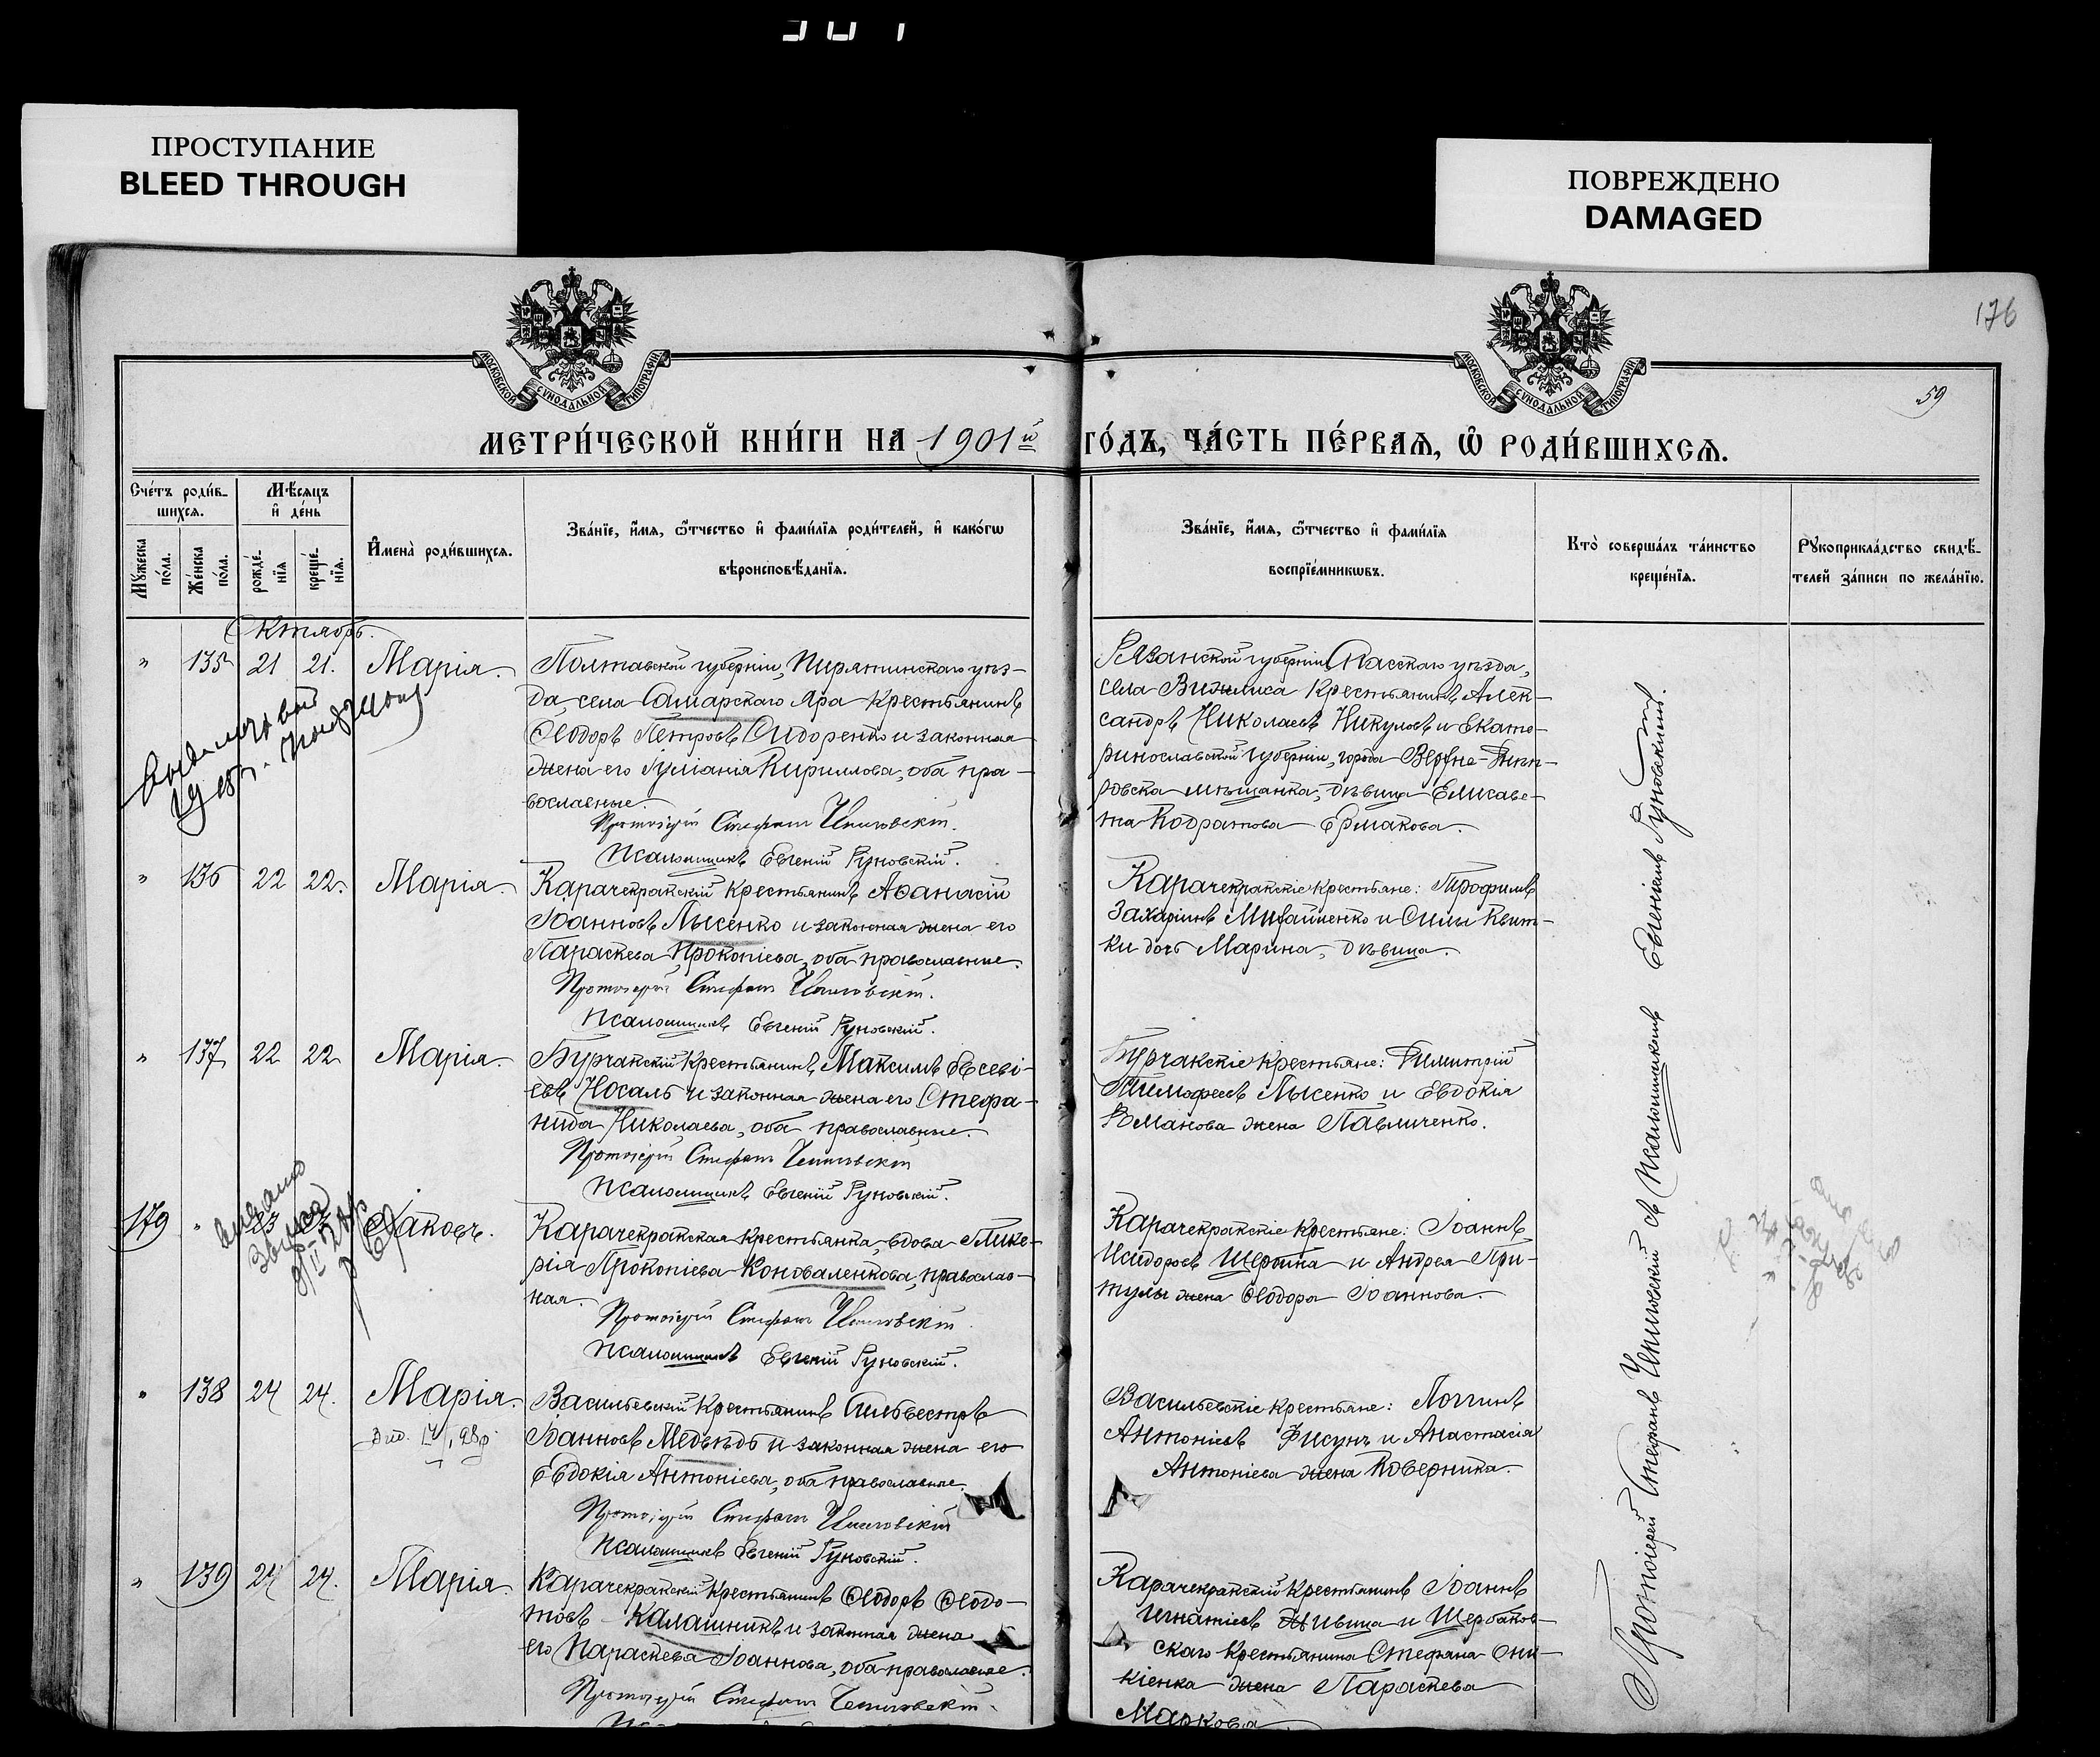 ПРОСТУПАНИЕ
BLEED THROUGH
ПОВРЕЖДЕНО
DAMAGED
176
59
МОСКОВСКОЙ СѴНОДАЛЬНОЙ ТИПОГРАФІИ
МОСКОВСКОЙ СѴНОДАЛЬНОЙ ТИПОГРАФІИ
МЕТРИ́ЧЕСКОЙ КНИ́ГИ НА 1901й ГО́ДЪ, ЧА́СТЬ ПЕ́РВАѦ, Ѡ҆ РОДИ́ВШИХСѦ.
Сче́тъ роди́в-
шихсѧ.
Мѣ́сѧцъ
и҆ де́нь
Мꙋ́жеска
по́ла.
Же́нска
по́ла.
рожде́-
нїѧ
креще́-
нїѧ.
И҆мена̀ роди́вшихсѧ.
Зва́нїе, и҆́мѧ, ѻ҆́тчество и҆ фами́лїѧ роди́телей, и҆ како́гѡ
вѣроисповѣ́данїѧ.
Зва́нїе, и҆́мѧ, ѻ҆́тчество и҆ фами́лїѧ
воспрїе́мникѡвъ.
Кто̀ соверша́лъ та́инство
креще́нїѧ.
Рꙋкоприкла́дство свидѣ́-
телей за́писи по жела́нїю.
Октябрь.
" 135 21 21. Марія.
Полтавской губерніи, Пирятинскаго уѣз-
да, села Самарскаго Яра крестьянинъ
Ѳеодоръ Петровъ Сидоренко и законная
жена его Іуліанія Кириллова, оба пра-
вославные.
Протоіерей Стефанъ
Псаломщикъ Евгеній Руновскій.
Рязанской губерніи, Спасскаго уѣзда,
села крестьянинъ Алек-
сандръ Николаевъ Никуловъ и Екате-
ринославской губерніи, города Верхне-Днѣп-
ровска мѣщанка, дѣвица Елисаве-
та Кодратова Ермакова.
" 136 22 22. Марія.
Карачекракскій крестьянинъ Аѳанасій
Іоанновъ Лысенко и законная жена его
Параскева Прокопіева, оба православные.
Протоіерей Стефанъ
Псаломщикъ Евгеній Руновскій.
Карачекракскіе крестьяне: Трофимъ
Захаріинъ Михайленко и Силы Квит-
ки дочь Марина, дѣвица.
" 137 22 22 Марія.
Бурчакскій крестьянинъ Максимъ Евсеві-
евъ Носаль и законная жена его Стефа-
нида Николаева, оба православные.
Протоіерей Стефанъ
Псаломщикъ Евгеній Руновскій.
Бурчакскіе крестьяне: Димитрій
Тимофеевъ Лысенко и Евдокія
Романова жена Павличенко.
179 " 23 23 Іаковъ.
Карачекракская крестьянка, вдова Глике-
рія Прокопіева Коноваленкова, православ-
ная.
Протоіерей Стефанъ
Псаломщикъ Евгеній Руновскій.
Карачекракскіе крестьяне: Іоаннъ
Исидоровъ Щербина и Андрея При-
тулы жена Ѳеодора Іоаннова.
" 138 24 24. Марія.
Васильевскій крестьянинъ Сильвестръ
Іоанновъ Медвѣдь и законная жена его
Евдокія Антоніева, оба православные.
Протоіерей Стефанъ
Псаломщикъ Евгеній Руновскій.
Васильевскіе крестьяне: Логгинъ
Антоніевъ Фисунъ и Анастасія
Антоніева жена Коверника.
" 139 24 24. Марія.
Карачекракскій крестьянинъ Ѳеодоръ Ѳеодо-
товъ Калашникъ и законная жена
его Параскева Іоаннова, оба православные.
Протоіерей Стефанъ
Карачекракскій крестьянинъ Іоаннъ
Игнатіевъ Живица и Щербаков-
скаго крестьянина Стефана Они-
кіенка жена Параскева
Маркова
Протоіерей Стефанъ съ Псаломщикомъ Евгеніемъ Руновскимъ.